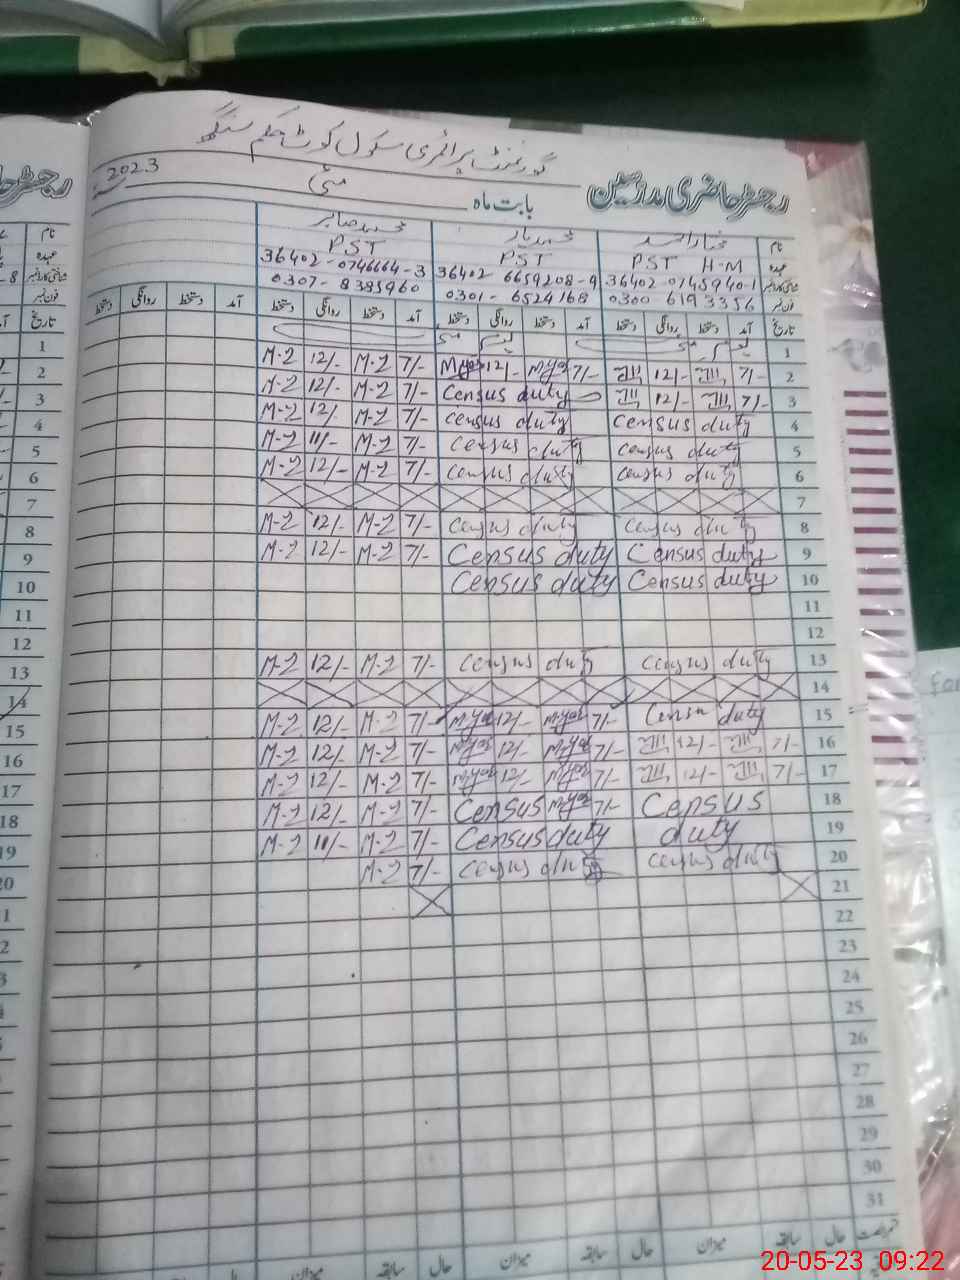 گورنمنٹ پرائمری سکول کوٹ حکم سنگھ
رجسٹر حاضری مدرسین بابت ماہ مئی 2023
نام مختار احمد محمد یار محمد صابر
عہدہ PST H-M PST PST
شناختی کارڈ نمبر 36402 0745940-1 36402 6659208-9 36402-0746664-3
فون نمبر 0300 6193356 0301-6524168 0307-8385960
تاریخ آمد دستخط روانگی دستخط آمد دستخط روانگی دستخط آمد دستخط روانگی دستخط آمد دستخط روانگی دستخط
1 یوم مئی یوم مئی
2 7/- 12/- 7/- Myar 12/- Myar 7/- M-2 12/- M-2
3 7/- 12/- Census duty 7/- M-2 12/- M-2
4 Census duty Census duty 7/- M-2 12/- M-2
5 Census duty Census duty 7/- M-2 11/- M-2
6 Census duty Census duty 7/- M-2 12/- M-2
7
8 Census duty Census duty 7/- M-2 12/- M-2
9 Census duty Census duty 7/- M-2 12/- M-2
10 Census duty Census duty
11
12
13 Census duty Census duty 7/- M-2 12/- M-2
14
15 Census duty 7/- Myar 12/- Myar 7/- M-2 12/- M-2
16 7/- 12/- 7/- Myar 12/- Myar 7/- M-2 12/- M-2
17 7/- 12/- 7/- Myar 12/- Myar 7/- M-2 12/- M-2
18 Census Census Myar 7/- 7/- M-2 12/- M-2
19 duty Census duty 7/- M-2 11/- M-2
20 Census duty Census duty 7/- M-2
21
22
23
24
25
26
27
28
29
30
31
حال سابقہ میزان حال سابقہ میزان حال سابقہ میزان
20-05-23 09:22